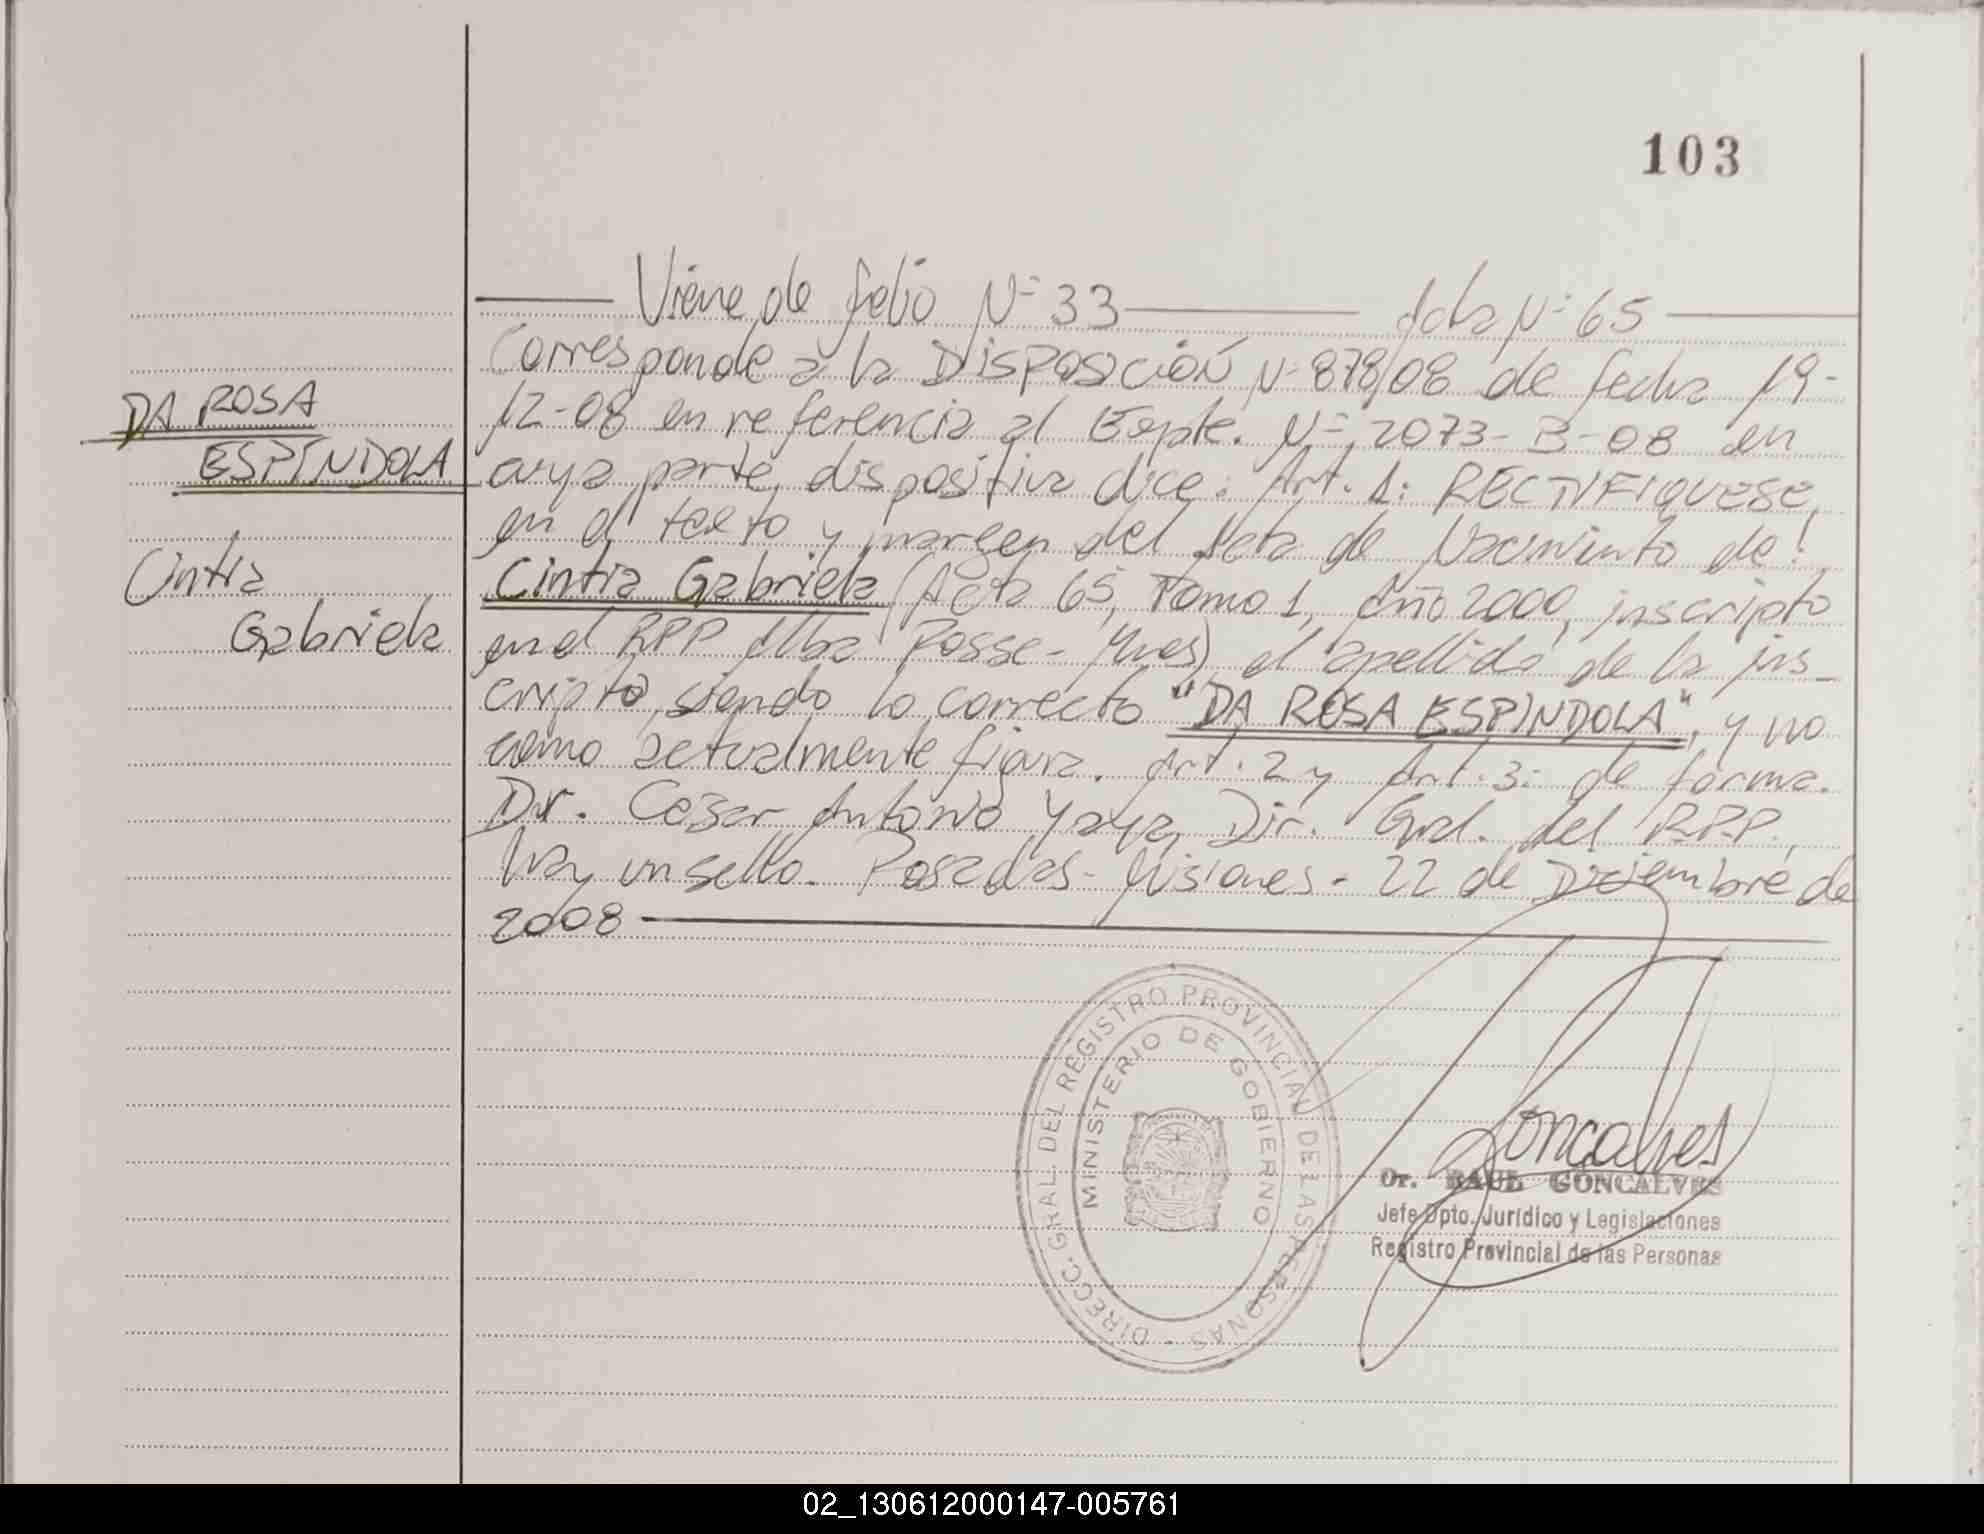 103
Viene de folio N° 33 Acta N° 65
Corresponde a la DISPOSICIÓN N° 878/08 de fecha 19-
12-08 en referencia al Expte. N° 2073-B-08 en
cuya parte dispositiva dice: Art. 1: RECTIFIQUESE
en el texto y margen del Acta de Nacimiento de:
Cintia Gabriela (Acta 65, Tomo 1, Año 2000, inscripto
en el RPP Alba Posse - Mnes) el apellido de la ins-
cripta, siendo lo correcto "DA ROSA ESPINDOLA", y no
como actualmente figura. Art. 2 y Art. 3: de forma.
Dr. Cesar Antonio Yaya, Dir. Gral. del R.P.P.,
hay un sello. Posadas - Misiones - 22 de Diciembre de
2008
DA ROSA
ESPINDOLA
Cintia
Gabriela
DIRECC. GRAL. DEL REGISTRO PROVINCIAL DE LAS PERSONAS
MINISTERIO DE GOBIERNO
Goncalves
Dr. RAUL GONCALVES
Jefe Dpto. Jurídico y Legislaciones
Registro Provincial de las Personas
02_130612000147-005761